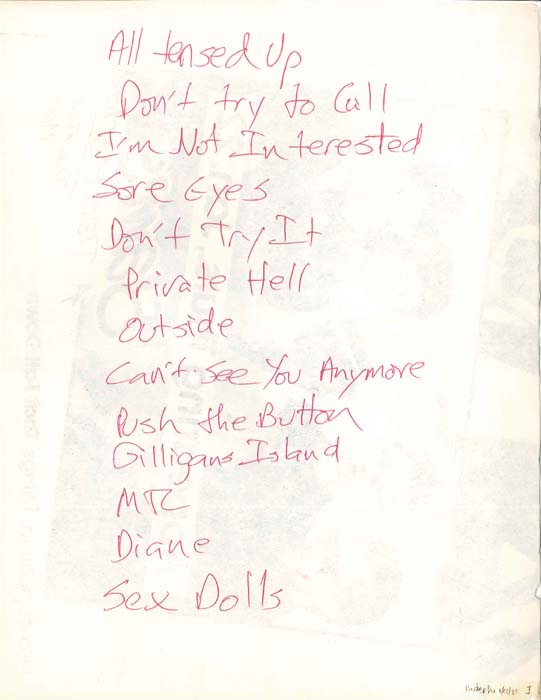 All tensed Up
Don't try to Call
I'm Not Interested
Sore Eyes
Don't Try It
Private Hell
Outside
Can't See You Anymore
Push the Button
Gilligans Island
MTC
Diane
Sex Dolls